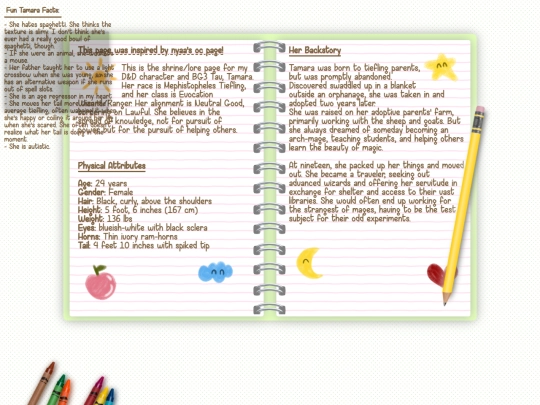 Fun Tamara Facts:
- She hates spaghetti. She thinks the
texture is slimy. I don't think she's
ever had a really good bowl of
spaghetti, though.
- If she were an animal, she'd be
a mouse
- Her father taught her to use a light
crossbow when she was young, so she
has an alternative weapon if she runs
out of spell slots.
- She is an age regressor in my heart.
- She moves her tail more than the
average tiefling, often wagging it when
she's happy or coiling it around her leg
when she's scared. She often doesn't
realize what her tail is doing in the
moment.
- She is autistic.
This page was inspired by nyaa's oc page!
This is the shrine/lore page for my
D&D character and BG3 Tav, Tamara.
Her race is Mephistopheles Tiefling,
and her class is Evocation
Wizard/Ranger. Her alignment is Neutral Good,
bordering on Lawful. She believes in the
pursuit of knowledge, not for pursuit of
power, but for the pursuit of helping others.
Physical Attributes
Age: 24 years
Gender: Female
Hair: Black, curly, above the shoulders
Height: 5 foot, 6 inches (167 cm)
Weight: 136 lbs
Eyes: blueish-white with black sclera
Horns: Thin ivory ram-horns
Tail: 4 feet 10 inches with spiked tip
Her Backstory
Tamara was born to tiefling parents,
but was promptly abandoned.
Discovered swaddled up in a blanket
outside an orphanage, she was taken in and
adopted two years later.
She was raised on her adoptive parents' farm,
primarily working with the sheep and goats. But
she always dreamed of someday becoming an
arch-mage, teaching students, and helping others
learn the beauty of magic.
At nineteen, she packed up her things and moved
out. She became a traveler, seeking out
advanced wizards and offering her servitude in
exchange for shelter and access to their vast
libraries. She would often end up working for
the strangest of mages, having to be the test
subject for their odd experiments.